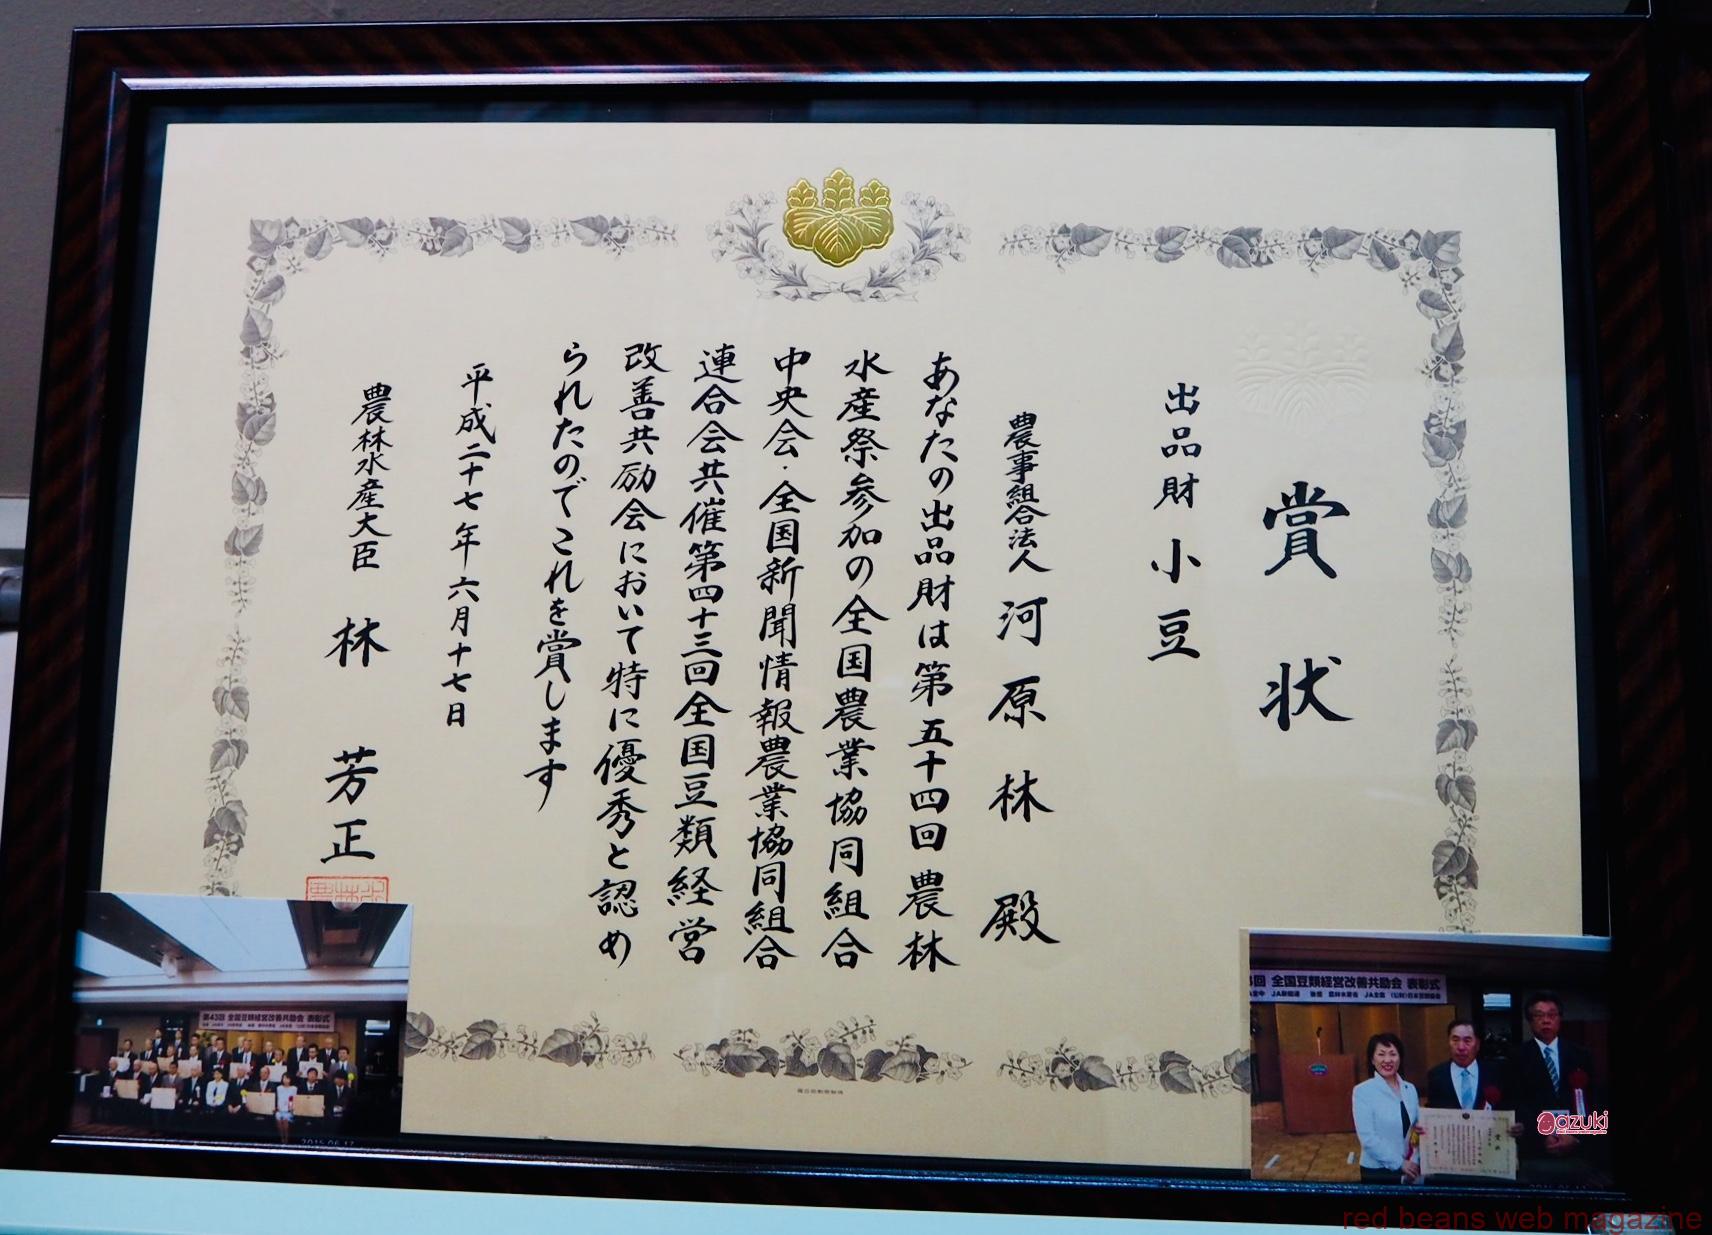 賞状
出品財 小豆
農事組合法人 河原林 殿
あなたの出品財は第五十四回農林
水産祭参加の全国農業協同組合
中央会・全国新聞情報農業協同組合
連合会共催第四十三回全国豆類経営
改善共励会において特に優秀と認め
られたのでこれを賞します
平成二十七年六月十七日
農林水産大臣 林 芳正
第43回 全国豆類経営改善共励会 表彰式
2015.06.17
回 全国豆類経営改善共励会 表彰式
azuki
red beans web magazine